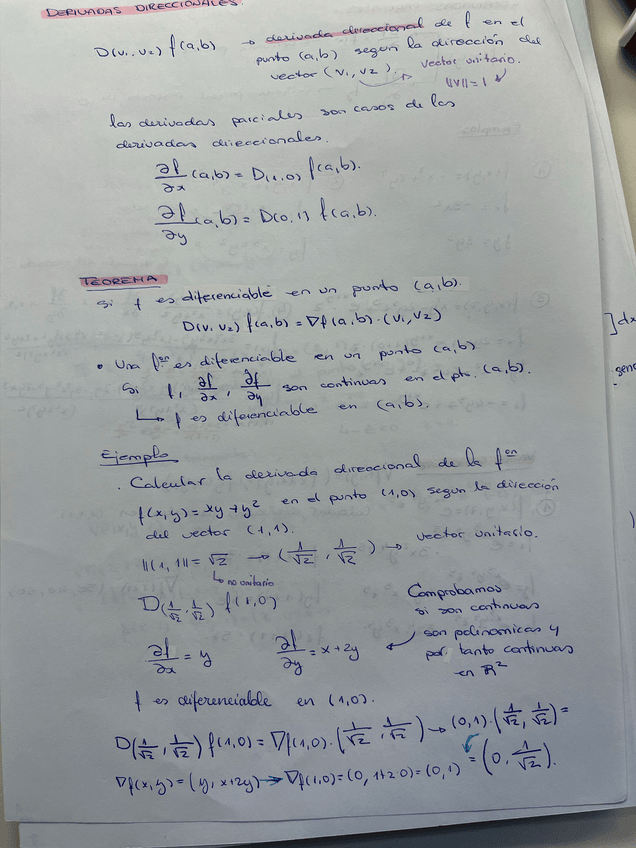 DERIVADAS DIRECCIONALES.
D(v₁,v₂) f(a,b) → derivada direccional de f en el
punto (a,b) según la dirección del
vector (v₁,v₂). → vector unitario.
||v||=1
las derivadas parciales son casos de las
derivadas direccionales.
∂f/∂x (a,b) = D(1,0) f(a,b).
∂f/∂y (a,b) = D(0,1) f(a,b).
TEOREMA
Si f es diferenciable en un punto (a,b).
D(v₁,v₂) f(a,b) = ∇f(a,b)·(v₁,v₂)
• Una fᵒⁿ es diferenciable en un punto (a,b)
Si f, ∂f/∂x, ∂f/∂y son continuas en el pto. (a,b).
↳ f es diferenciable en (a,b).
Ejemplo
. Calcular la derivada direccional de la fᵒⁿ
f(x,y) = xy + y² en el punto (1,0) según la dirección
del vector (1,1).
||(1,1|| = √2 → (1/√2, 1/√2) → vector unitario.
↳ no unitario
D(1/√2, 1/√2) f(1,0)
Comprobamos
si son continuas
∂f/∂x = y ∂f/∂y = x+2y ← son polinomicas y
por tanto continuas
en ℝ²
f es diferenciable en (1,0).
D(1/√2, 1/√2) f(1,0) = ∇f(1,0)·(1/√2, 1/√2) → (0,1)·(1/√2, 1/√2) =
∇f(x,y) = (y, x+2y) → ∇f(1,0) = (0, 1+2·0) = (0,1) = (0, 1/√2).
] dx